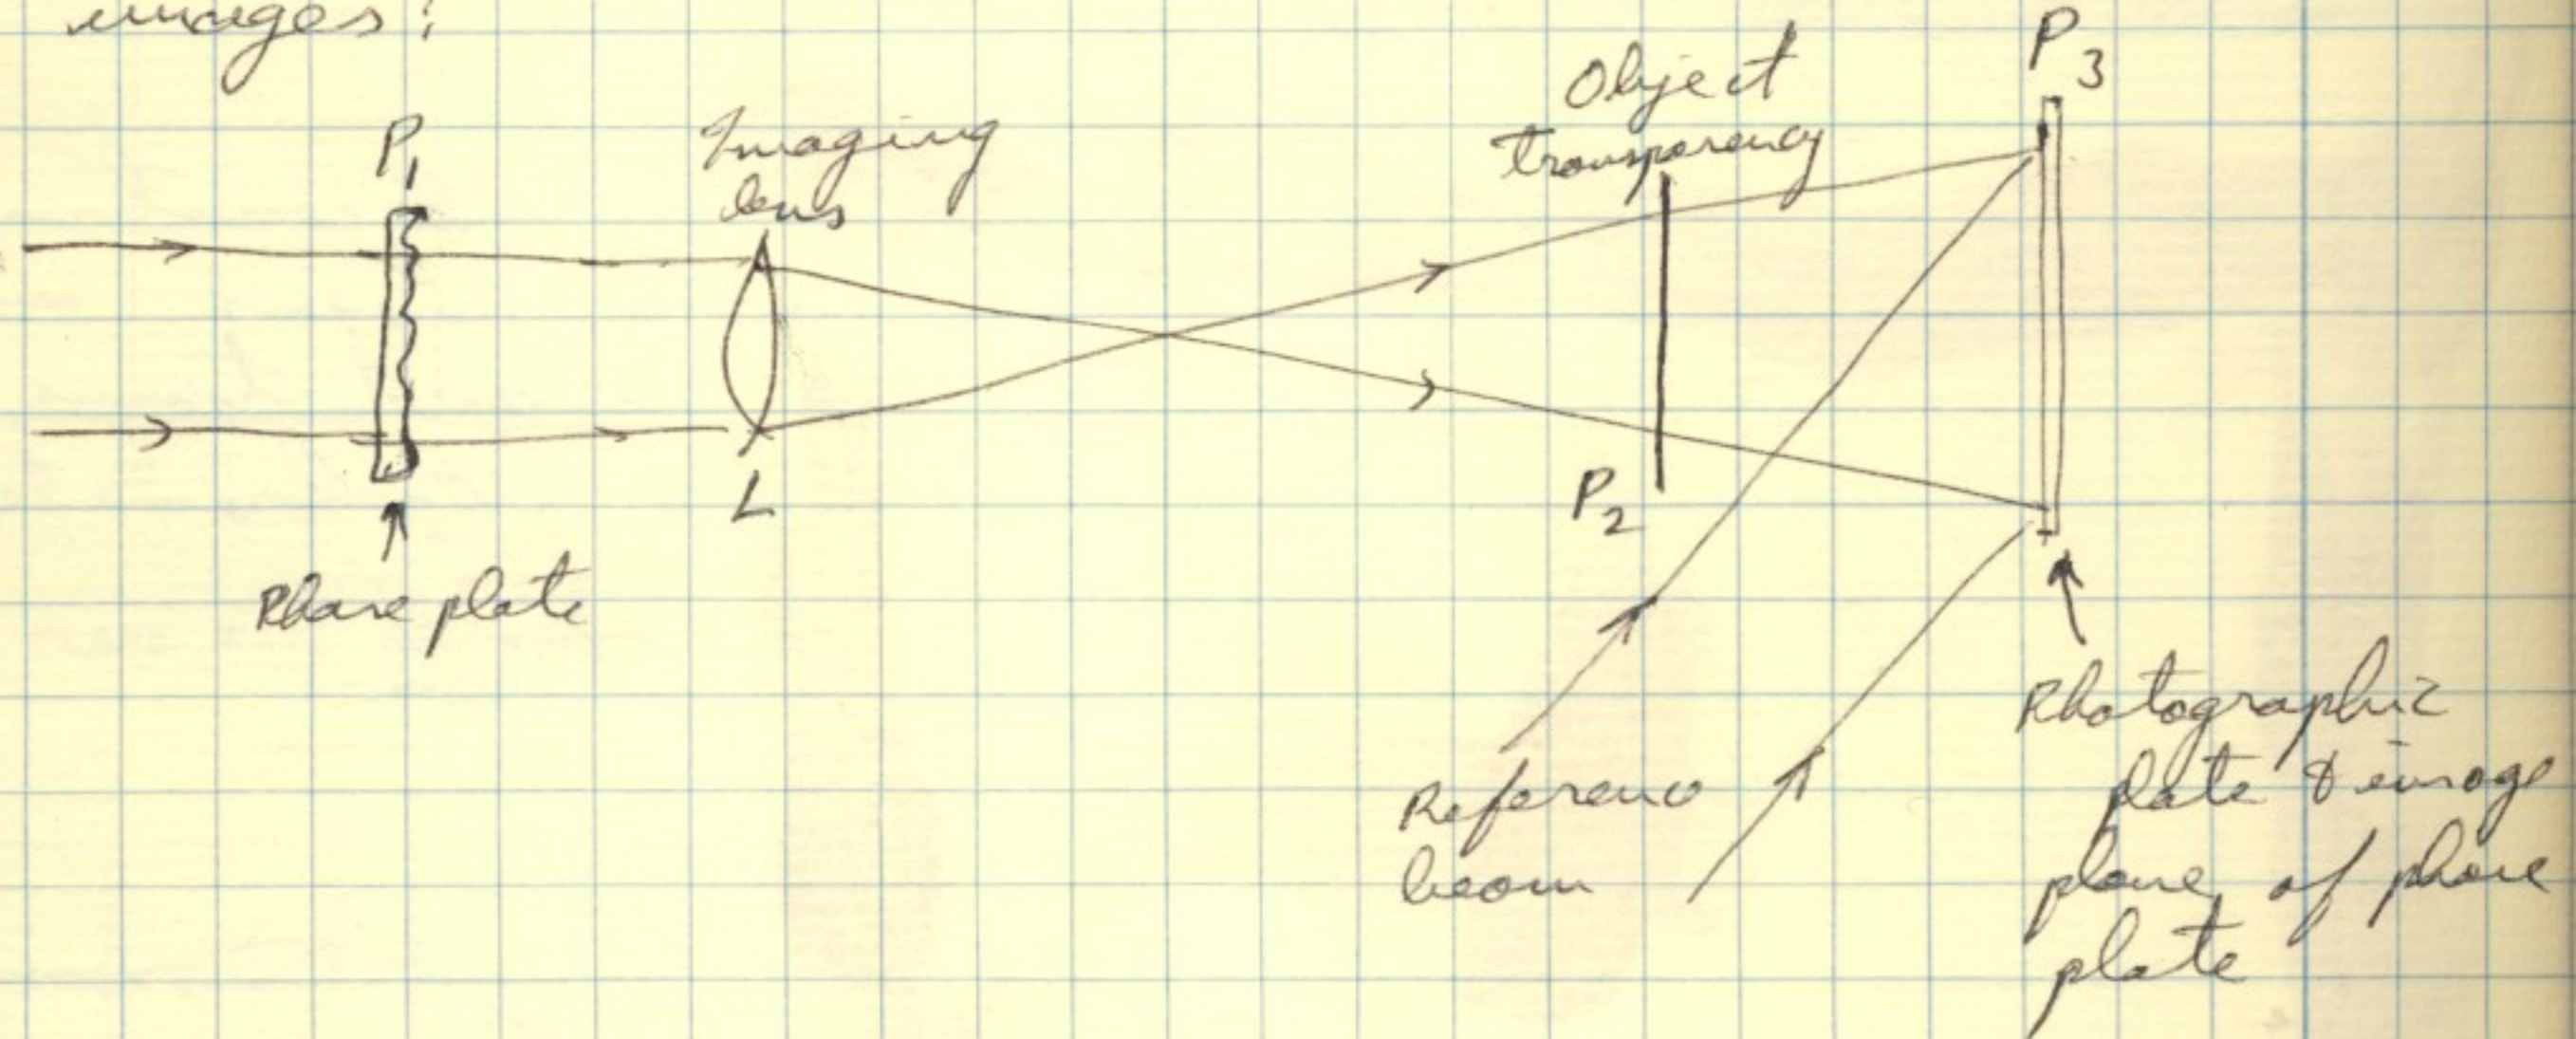 images:
P1
Imaging
lens
Object
transparency
P3
L
P2
Phase plate
Reference
beam
Photographic
plate & image
plane of phase
plate